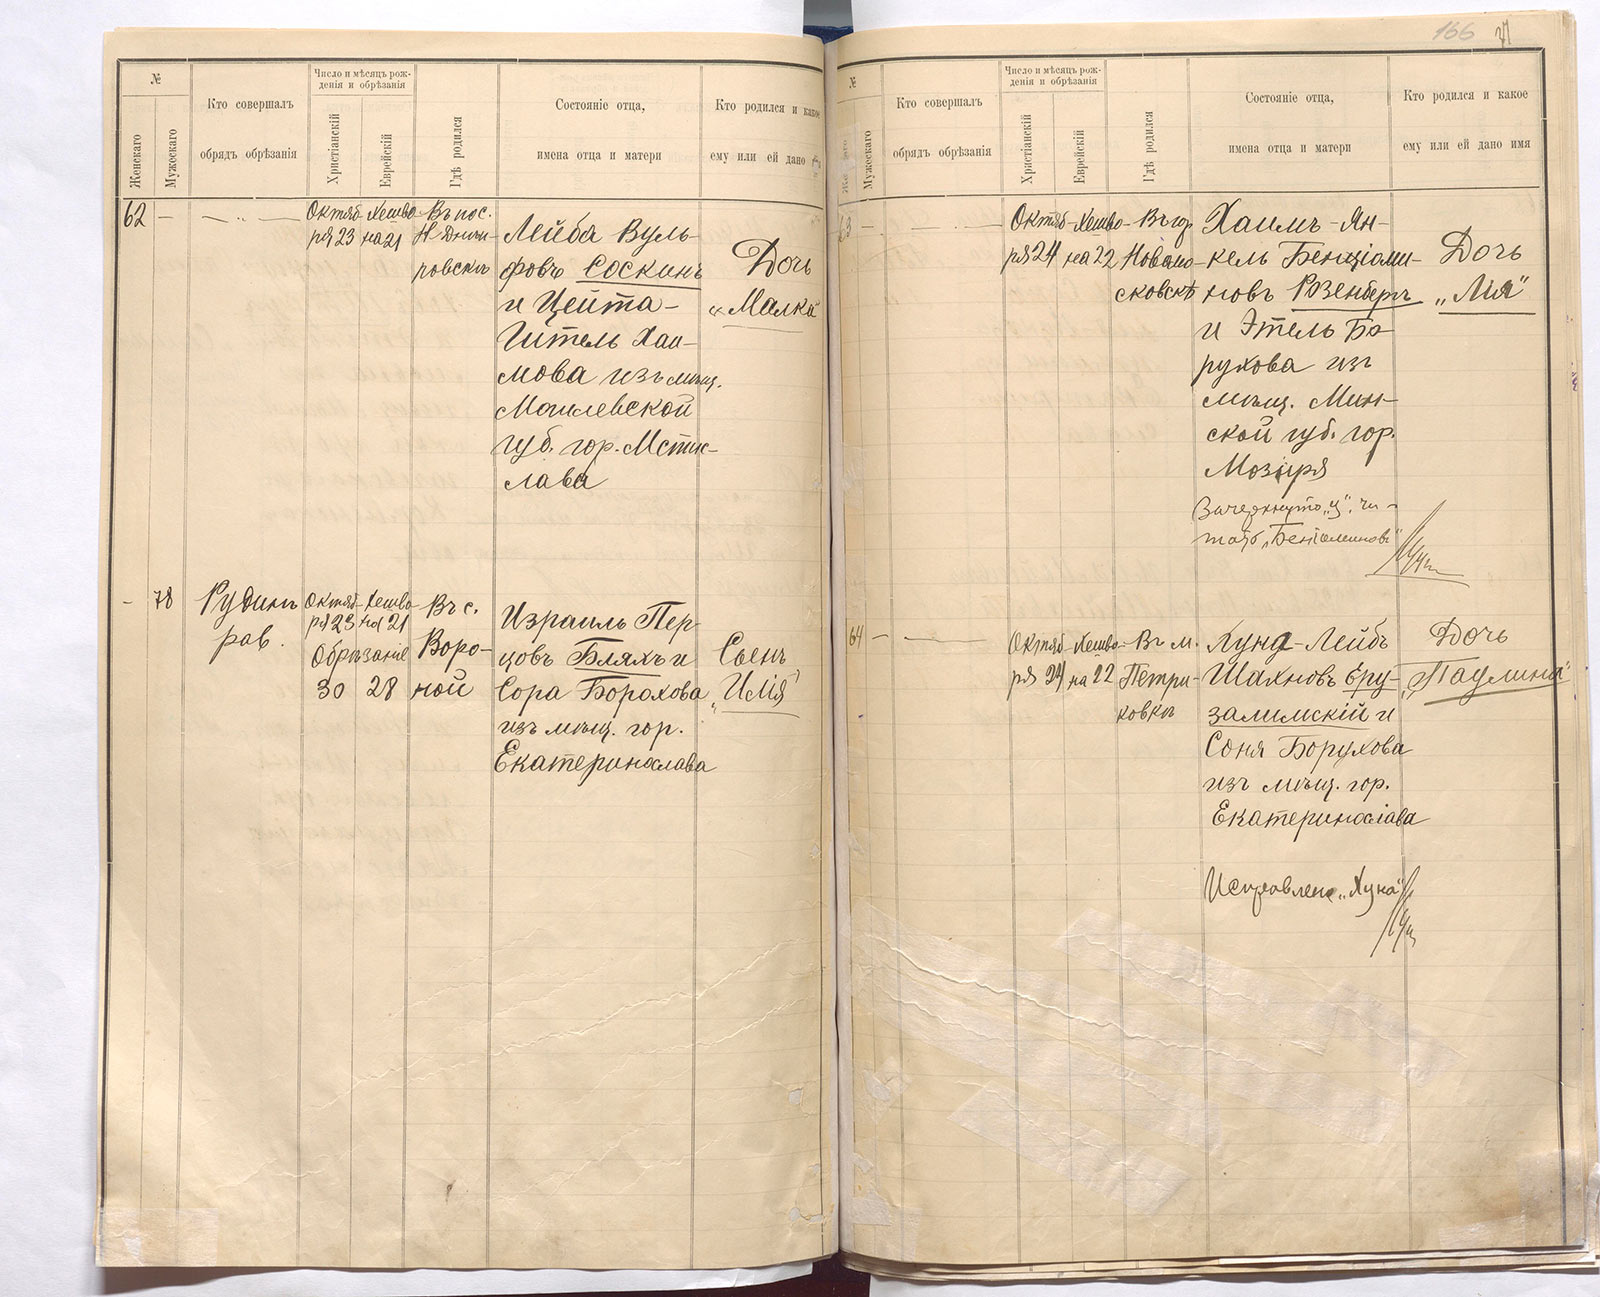 166 71
№
Женскаго
Мужескаго
Кто совершалъ
обрядъ обрѣзанія
Число и мѣсяцъ рож-
денія и обрѣзанія
Христіанскій
Еврейскій
Гдѣ родился
Состояніе отца,
имена отца и матери
Кто родился и какое
ему или ей дано
62
Октяб-
ря 23
Хешво-
на 21
Въ пос.
Н Днѣп-
ровскѣ
Лейба Вуль-
фовъ Соскинъ
и Цейта-
Гитель Хаи-
мова изъ мѣщ.
Могилевской
губ. гор. Мстис-
лава
Дочь
„Малка"
- 78
Рудинъ
рав.
Октяб-
ря 23
Хешво-
на 21
Обрѣзаніе
30 28
Въ с.
Воро-
ной
Израиль Пер-
цовъ Бляхъ и
Сора Борохова
изъ мѣщ. гор.
Екатеринослава
Сынъ
„Илія"
№
Мужескаго
Кто совершалъ
обрядъ обрѣзанія
Число и мѣсяцъ рож-
денія и обрѣзанія
Христіанскій
Еврейскій
Гдѣ родился
Состояніе отца,
имена отца и матери
Кто родился и какое
ему или ей дано имя
63
Октяб-
ря 24
Хешво-
на 22
Въ гор.
Новомо-
сковскѣ
Хаимъ-Ян-
кель Бенціами-
новъ Розенберъ
и Этель Бо-
рухова изъ
мѣщ. Мин-
ской губ. гор.
Мозыря
Дочь
„Лія"
Зачеркнуто „ц", чи-
тать „Беніаминовъ"
64
Октяб-
ря 24
Хешво-
на 22
Въ м.
Петри-
ковкѣ
Хуна-Лейбъ
Шахновъ Еру-
залимскій и
Соня Борухова
изъ мѣщ. гор.
Екатеринослава
Дочь
„Паулина"
Исправлено „Хуна"